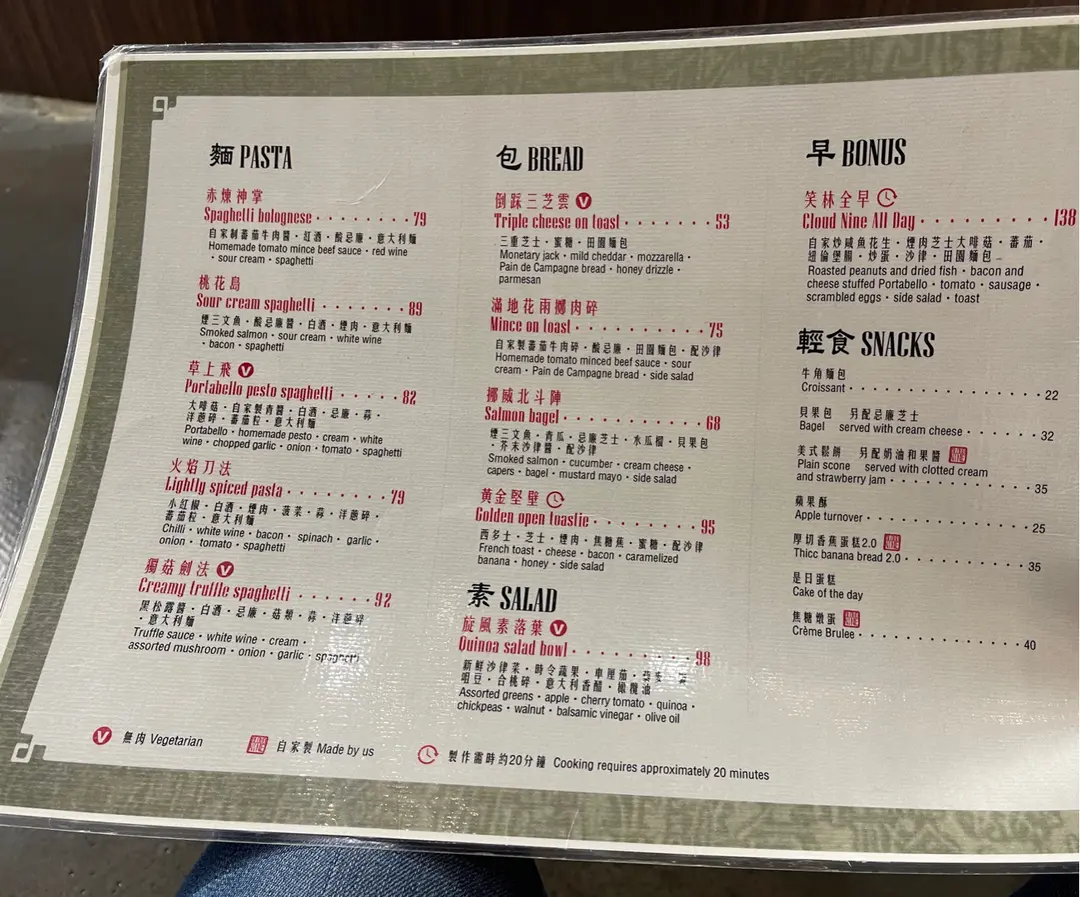 麵 PASTA
赤煉神掌
Spaghetti bolognese · · · · · · · · 79
自家制番茄牛肉醬・紅酒・酸忌廉・意大利麵
Homemade tomato mince beef sauce • red wine
• sour cream • spaghetti
桃花島
Sour cream spaghetti · · · · · · · 89
煙三文魚・酸忌廉醬・白酒・煙肉・意大利麵
Smoked salmon • sour cream • white wine
• bacon • spaghetti
草上飛 V
Portabello pesto spaghetti · · · · · 82
大啡菇・自家製青醬・白酒・忌廉・蒜・
洋蔥碎・番茄粒・意大利麵
Portabello • homemade pesto • cream • white
wine • chopped garlic • onion • tomato • spaghetti
火焰刀法
Lightly spiced pasta · · · · · · · · 79
小紅椒・白酒・煙肉・菠菜・蒜・洋蔥碎・
番茄粒・意大利麵
Chilli • white wine • bacon • spinach • garlic •
onion • tomato • spaghetti
獨菇劍法 V
Creamy truffle spaghetti · · · · · · 92
黑松露醬・白酒・忌廉・菇類・蒜・洋蔥碎
・意大利麵
Truffle sauce • white wine • cream •
assorted mushroom • onion • garlic • spaghetti
包 BREAD
倒踩三芝雲 V
Triple cheese on toast · · · · · · · 53
三重芝士・蜜糖・田園麵包
Monetary jack • mild cheddar • mozzarella •
Pain de Campagne bread • honey drizzle •
parmesan
滿地花雨擲肉碎
Mince on toast · · · · · · · · · · 75
自家製番茄牛肉碎・酸忌廉・田園麵包・配沙律
Homemade tomato minced beef sauce • sour
cream • Pain de Campagne bread • side salad
挪威北斗陣
Salmon bagel · · · · · · · · · · · 68
煙三文魚・青瓜・忌廉芝士・水瓜榴・貝果包
・芥末沙律醬・配沙律
Smoked salmon • cucumber • cream cheese •
capers • bagel • mustard mayo • side salad
黃金堅壁
Golden open toastie · · · · · · · · 95
西多士・芝士・煙肉・焦糖蕉・蜜糖・配沙律
French toast • cheese • bacon • caramelized
banana • honey • side salad
素 SALAD
旋風素落葉 V
Quinoa salad bowl · · · · · · · · · 98
新鮮沙律菜・時令蔬果・車厘茄・
咀豆・合桃碎・意大利香醋・橄欖油
Assorted greens • apple • cherry tomato • quinoa •
chickpeas • walnut • balsamic vinegar • olive oil
早 BONUS
笑林全早
Cloud Nine All Day · · · · · · · · · 138
自家炒咸魚花生・煙肉芝士大啡菇・番茄・
紐倫堡腸・炒蛋・沙律・田園麵包
Roasted peanuts and dried fish • bacon and
cheese stuffed Portabello • tomato • sausage •
scrambled eggs • side salad • toast
輕食 SNACKS
牛角麵包
Croissant · · · · · · · · · · · · · 22
貝果包 另配忌廉芝士
Bagel served with cream cheese · · · · · · 32
美式鬆餅 另配奶油和果醬
Plain scone served with clotted cream
and strawberry jam · · · · · · · · · · 35
蘋果酥
Apple turnover · · · · · · · · · · · 25
厚切香蕉蛋糕2.0
Thicc banana bread 2.0 · · · · · · · · 35
是日蛋糕
Cake of the day
焦糖燉蛋
Crème Brulee · · · · · · · · · · · · 40
V 無肉 Vegetarian 自家製 Made by us 製作需時約20分鐘 Cooking requires approximately 20 minutes